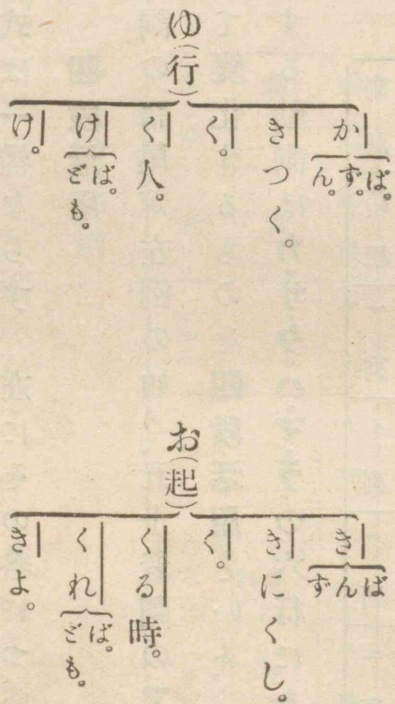 ゆ(行)
か ば。ず。ん。
きつく。
く。
く人。
け ば。ども。
け。
お(起)
き ばんず
きにくし。
く。
くる時。
くれ ば。ども。
きよ。